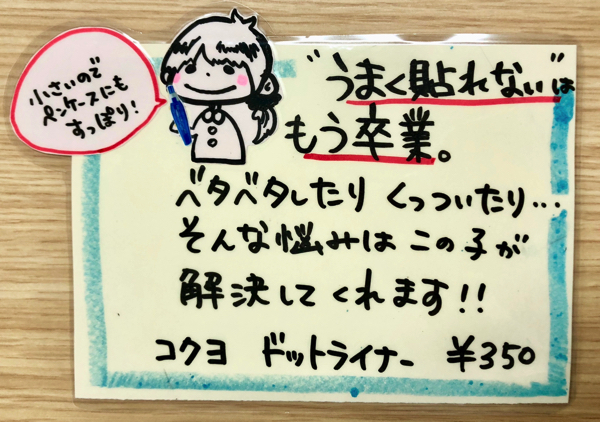 小さいので
ペンケースにも
すっぽり!
"うまく貼れない"は
もう卒業。
ベタベタしたり くっついたり…
そんな悩みは この子が
解決してくれます!!
コクヨ ドットライナー ¥350